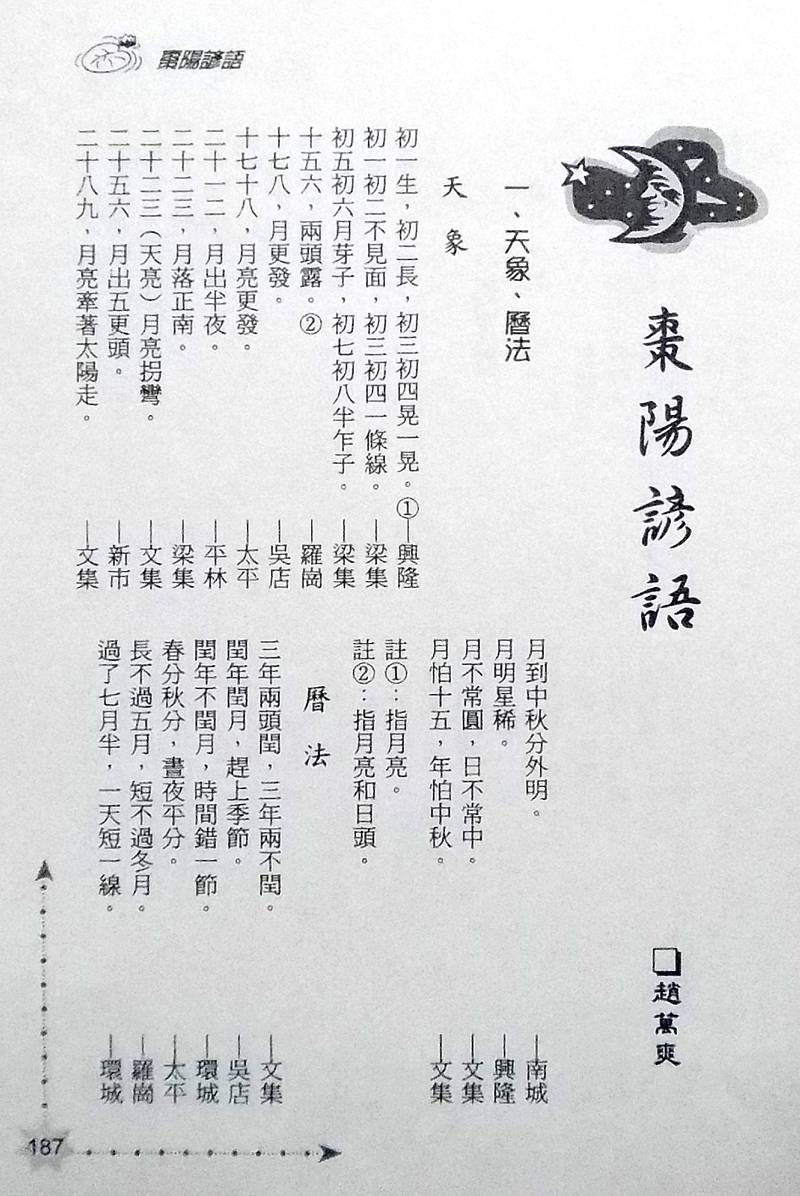 棗陽諺語
棗陽諺語
□趙萬爽
一、天象、曆法
天象
初一生，初二長，初三初四晃一晃。①——興隆
初一初二不見面，初三初四一條線。——梁集
初五初六月芽子，初七初八半乍子。——梁集
十五六，兩頭露。②——羅崗
十七八，月更發。——吳店
十七十八，月亮更發。——太平
二十一二，月出半夜。——平林
二十二三，月落正南。——梁集
二十二三（天亮）月亮拐彎。——文集
二十五六，月出五更頭。——新市
二十八九，月亮牽著太陽走。——文集
月到中秋分外明。——南城
月明星稀。——興隆
月不常圓，日不常中。——文集
月怕十五，年怕中秋。——文集
註①：指月亮。
註②：指月亮和日頭。
曆法
三年兩頭閏，三年兩不閏。——文集
閏年閏月，趕上季節。——吳店
閏年不閏月，時間錯一節。——環城
春分秋分，晝夜平分。——太平
長不過五月，短不過冬月。——羅崗
過了七月半，一天短一線。——環城
187